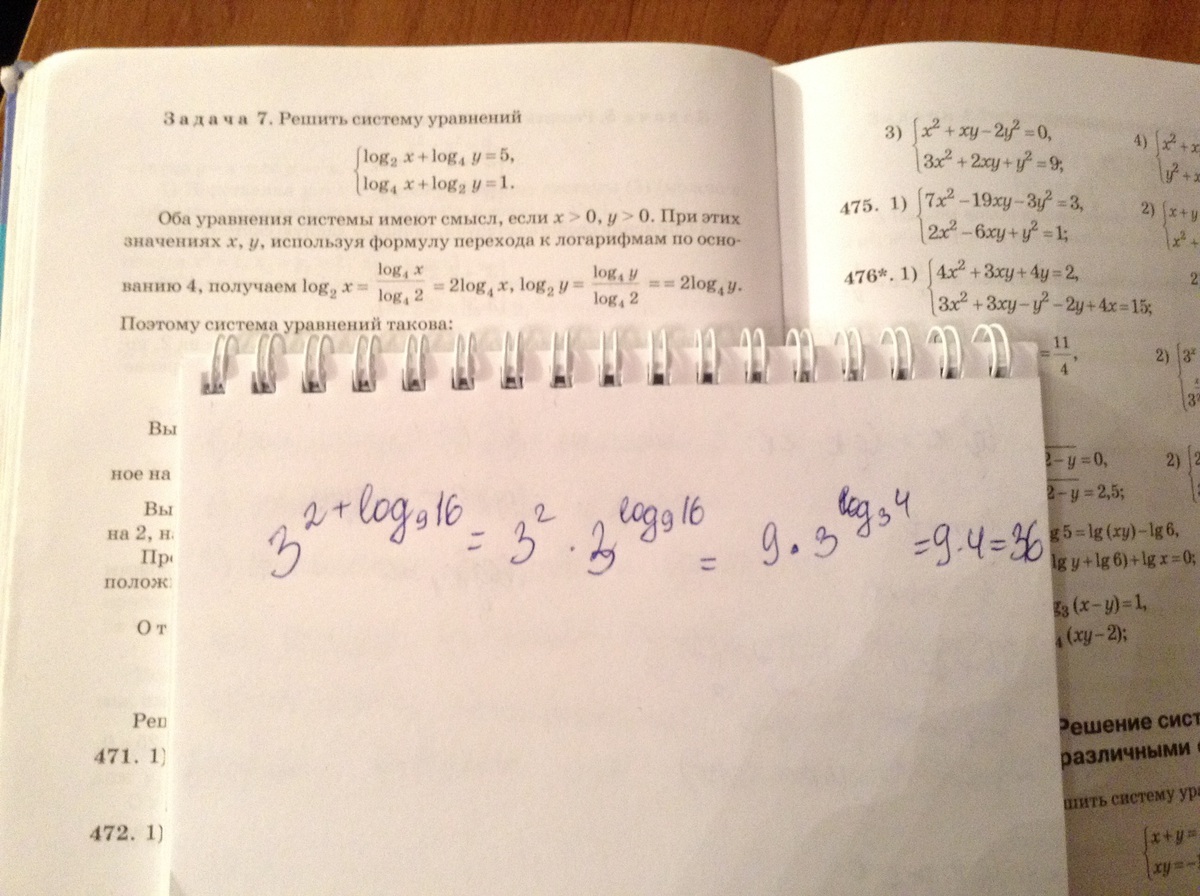 Задача 7. Решить систему уравнений
log₂ x + log₄ y = 5,
log₄ x + log₂ y = 1.
Оба уравнения системы имеют смысл, если x > 0, y > 0. При этих
значениях x, y, используя формулу перехода к логарифмам по осно-
ванию 4, получаем log₂ x = log₄ x / log₄ 2 = 2log₄ x, log₂ y = log₄ y / log₄ 2 = = 2log₄ y.
Поэтому система уравнений такова:
Вы
ное на
Вы
на 2, н
Пр
полож
От
Реш
471. 1)
472. 1)
3^(2+log₉16) = 3² · 3^(log₉16) = 9 · 3^(log₃4) = 9·4 = 36
3) x² + xy − 2y² = 0,
3x² + 2xy + y² = 9;
4) x² + x
y² + x
475. 1) 7x² − 19xy − 3y² = 3,
2x² − 6xy + y² = 1;
2) x + y
x² +
476*. 1) 4x² + 3xy + 4y = 2,
3x² + 3xy − y² − 2y + 4x = 15;
2
= 11/4,
2) 3ˣ
2 − y = 0,
2 − y = 2,5;
2) 2
g 5 = lg (xy) − lg 6,
lg y + lg 6) + lg x = 0;
g₃ (x − y) = 1,
₄ (xy − 2);
Решение сист
различными
шить систему ура
x + y =
xy = −